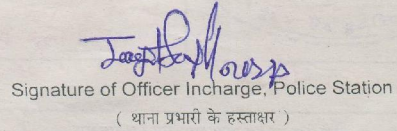 Signature of Officer Incharge, Police Station
( थाना प्रभारी के हस्ताक्षर )